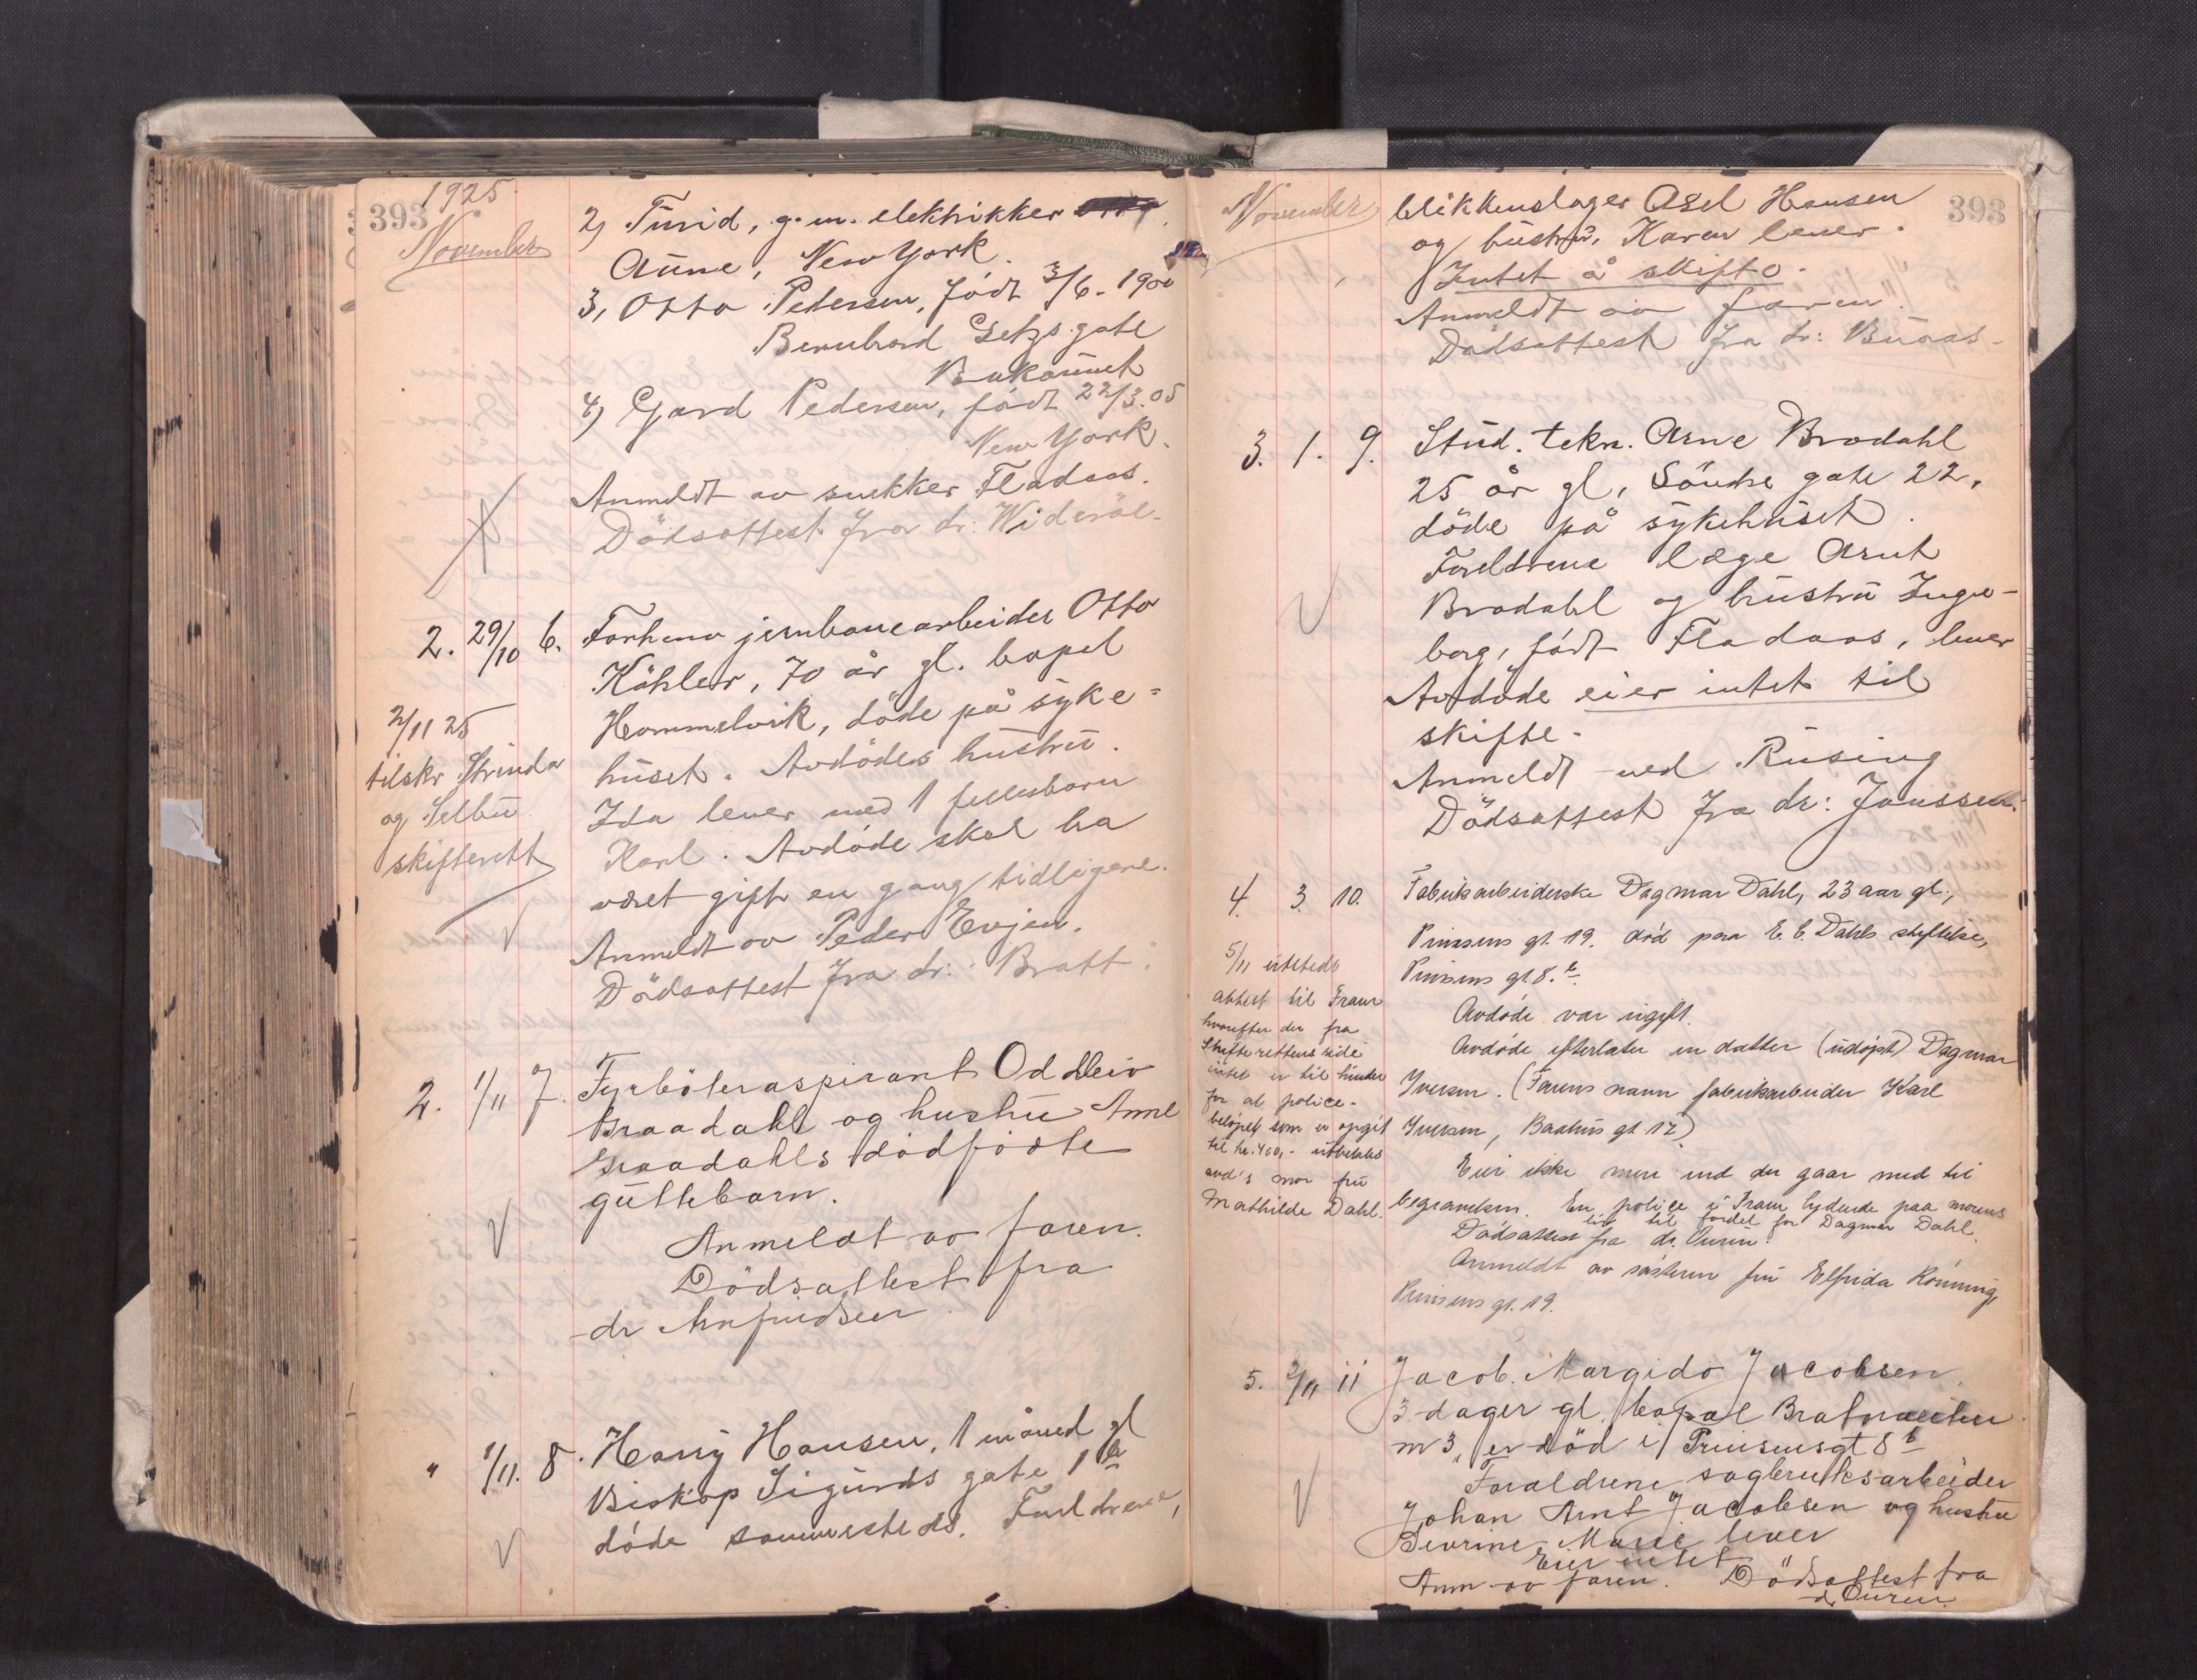 393
1925
November
2) Turid, g. m. elektrikker
Aune, New York.
3, Otto Pedersen, född 3/6. 1900
Bernhard Getzs gate
Bakaunet
4) Gard Pedersen, född 22/3.05
New York.
Anmeldt av snekker Fladaas.
Dödsattest fra dr: Wideröe.
2. 29/10 6. Forhenv jernbanearbeider Otto
Köhler, 70 år gl. bopel
Hommelvik, döde på syke=
huset. Avdödes hustru.
Ida lever med 1 fellesbarn
Karl. Avdöde skal ha
vært gift en gang tidligere.
Anmeldt av Peder Evjen.
Dödsattest fra dr: Bratt.
2/11 25
tilskr Strinda
og Selbu
skifterett
2. 1/11 7. Fyrböteraspirant Oddleiv
Graadahl og hustru Anne
Graadahls dødfødte
guttebarn.
Anmeldt av faren.
Dödsattest fra
dr Arnfindsen
" 1/11. 8. Harry Hansen, 1 måned gl
Biskop Sigurds gate 1 b
döde sammesteds. Foreldrene,
November
393
blikkenslager Axel Hansen
og hustru, Karen lever.
Intet å skifte.
Anmeldt av faren.
Dødsattest fra dr: Buaas.
3. 1. 9. Stud. tekn. Arne Brodahl
25 år gl, Söndre gate 22,
döde på sykehuset.
Foreldrene læge Arnt
Brodahl og hustru Inge-
borg, född Fladaas, lever
Avdøde eier intet til
skifte.
Anmeldt ved Rusing
Dödsattest fra dr: Janssen.
4. 3. 10. Fabrikarbeiderske Dagmar Dahl, 23 aar gl.,
Prinsens gt. 19. död paa E. C. Dahls stiftelse,
Prinsens gt. 8. b
Avdøde var ugift.
Avdøde efterlater en datter (udøpt) Dagmar
Iversen. (Farens navn fabrikarbeider Karl
Iversen, Bakhus gt 12)
Eier ikke mere end der gaar med til
begravelsen. En police i Fram lydende paa morens
liv til fordel for Dagmar Dahl.
Dødsattest fra dr. Ouren.
Anmeldt av søsteren fru Elfrida Rønning,
Prinsens gt. 19.
5/11 utstedt
attest til Fram
hvorefter der fra
Skifterettens side
intet er til hinder
for at police-
beløpet som er opgit
til kr. 400,- utbetales
avd's mor fru
Mathilde Dahl.
5. 2/11 11 Jacob. Margido Jacobsen,
3 dager gl. bopæl Bratørveiten
nr 3, er död i Prinsensgt 8 b
Foraldrene sagbruksarbeider
Johan Arnt Jacobsen og hustru
Sevrine Marie lever
Eier intet
Anm av faren. Dödsattest fra
dr Ouren.